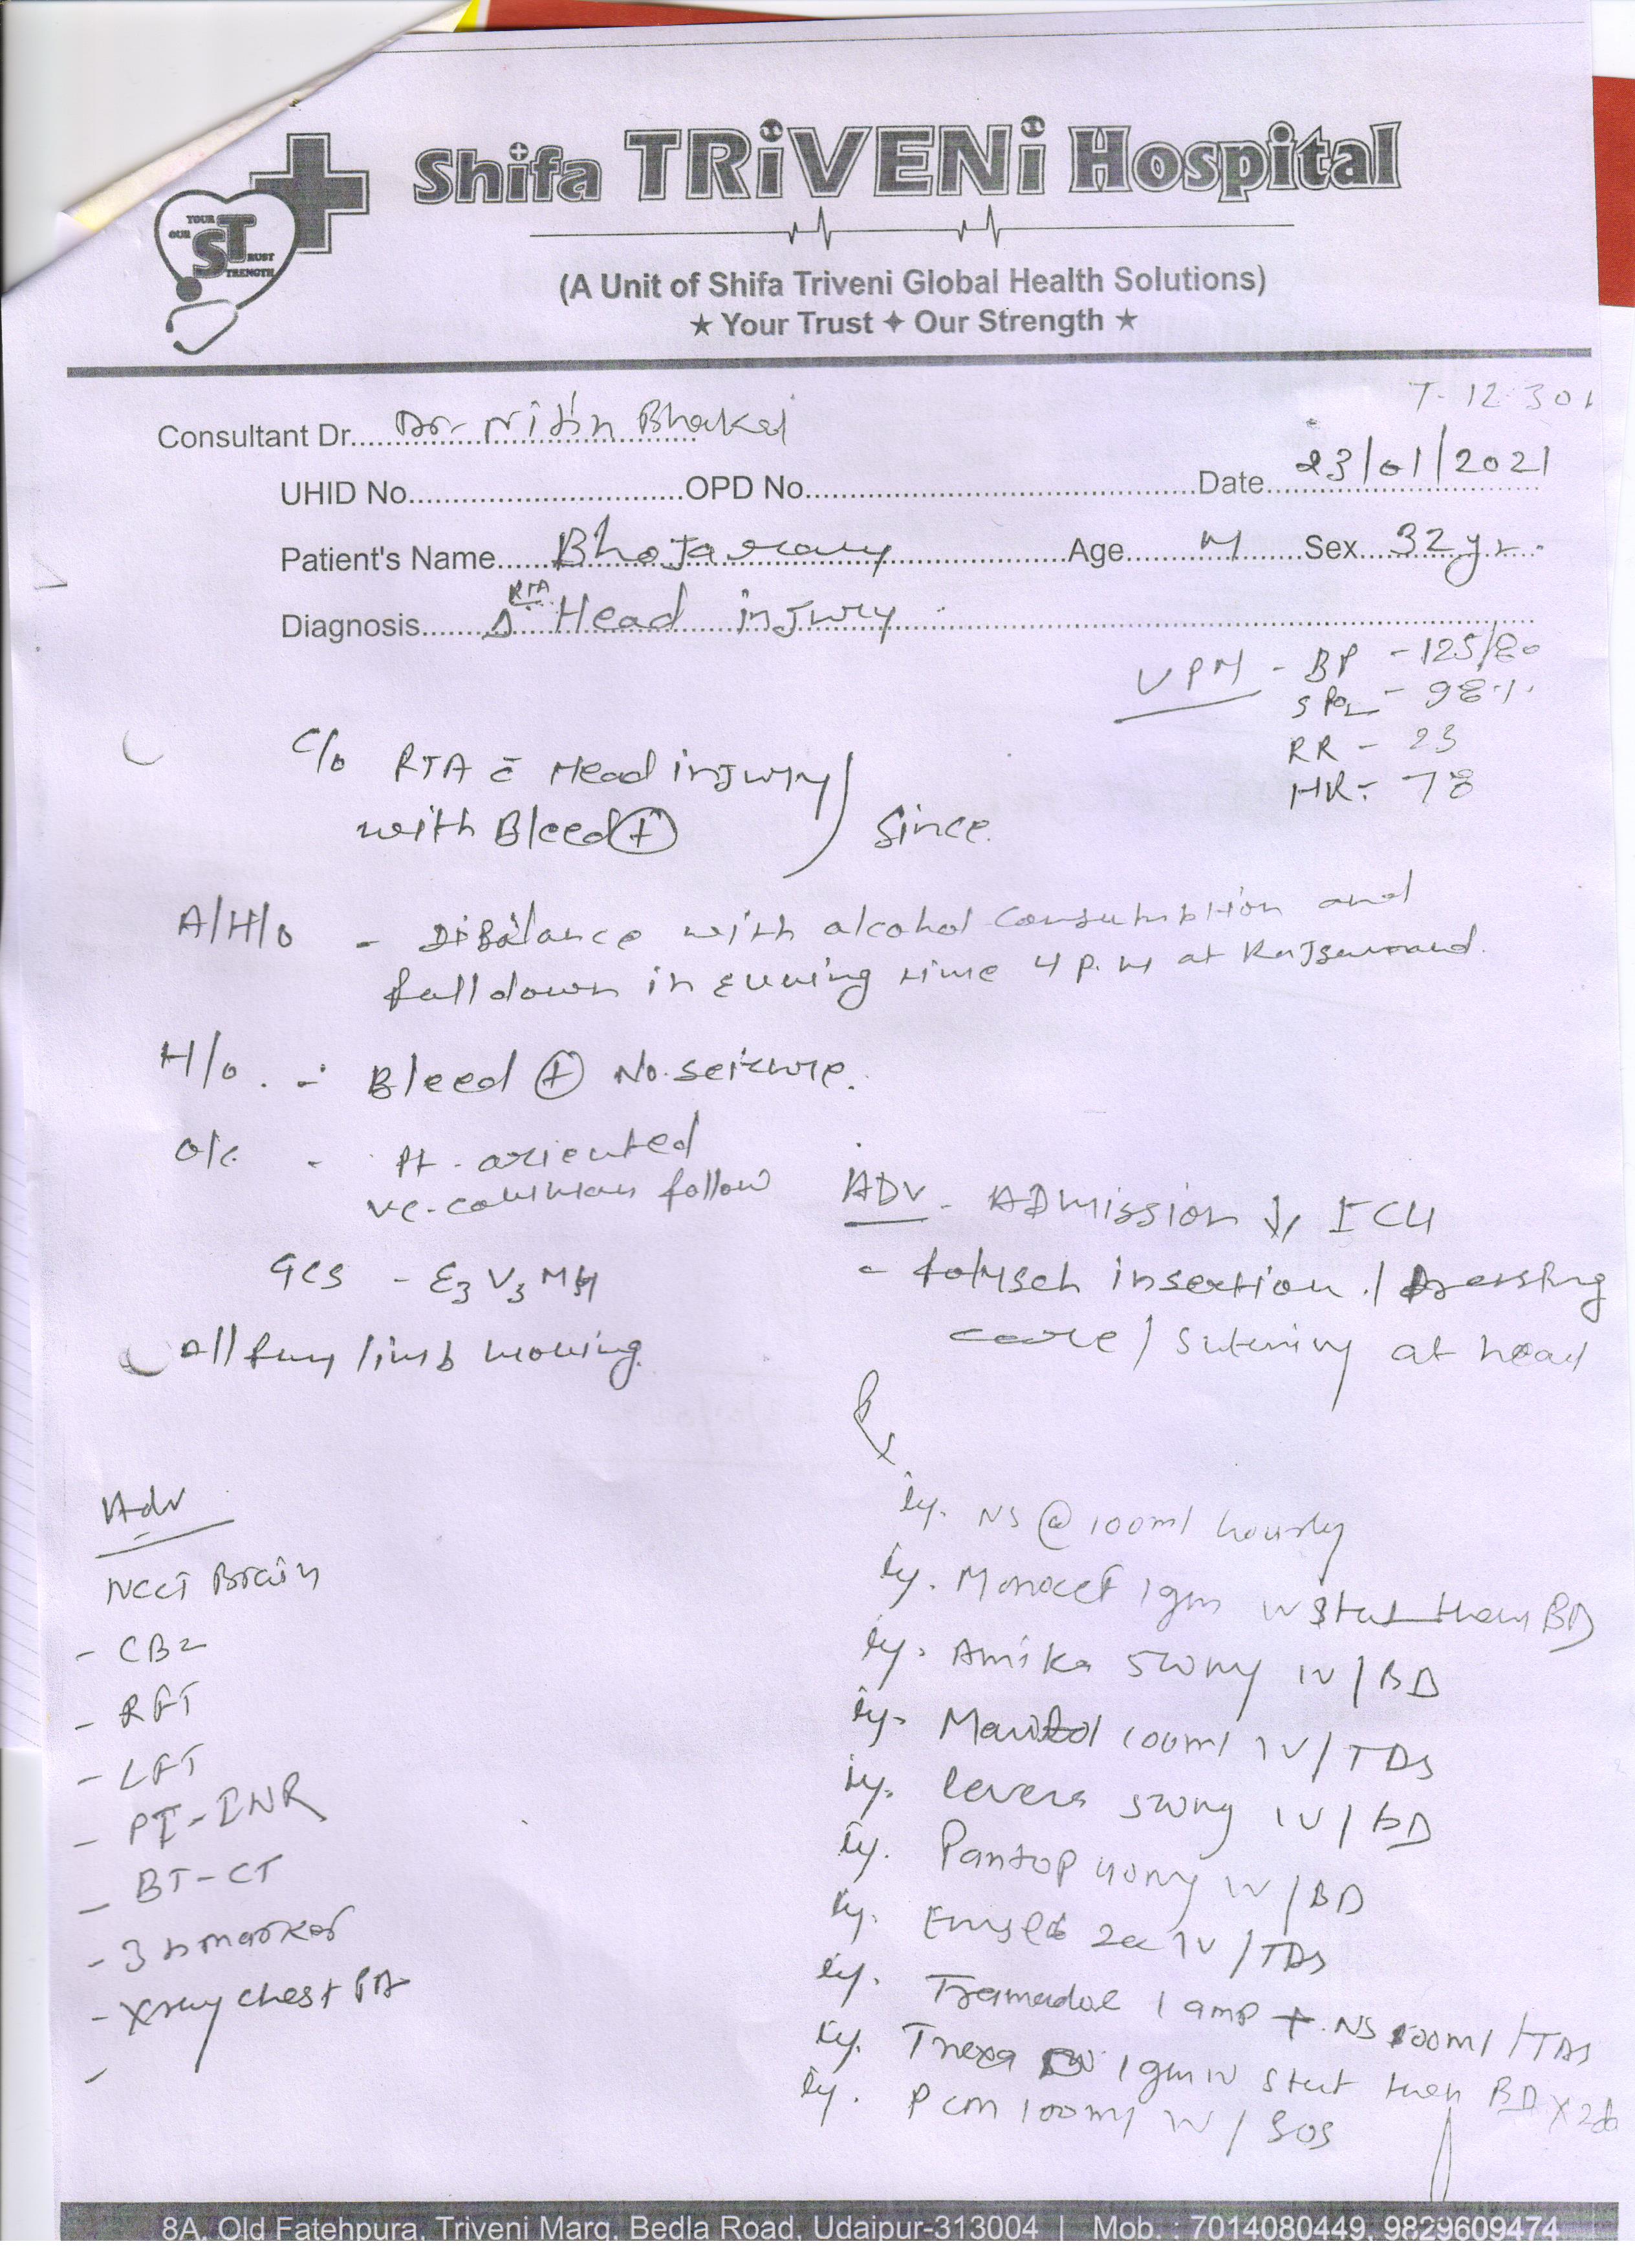 Shifa TRiVENi Hospital
YOUR OUR ST RUST TRENGTH
(A Unit of Shifa Triveni Global Health Solutions)
★ Your Trust ✦ Our Strength ★
T-12:30
Consultant Dr. Dr. Nitin Bhakal
UHID No. OPD No. Date 23/01/2021
Patient's Name Bhojaram Age M Sex 32 yr.
Diagnosis Δ RTA Head injury
VPM - BP - 125/80
SPO2 - 98%
RR - 23
HR - 78
C/o RTA c Head injury
with Bleed (+) Since
A/H/o - Disbalance with alcohol consumbtion and
fall down in evning time 4 p.m at Rajsamand.
H/o. - Bleed (+) No. seizure.
O/E - Pt. oriented
follow
GCS - E3 V3 M
All limb moving
ADV. Admission ICU
- insertion / Dressing
care / Suturing at head
Rx
Iy. NS @ 100ml hourly
Iy. Monocef 1gm IV Stat then BD
Iy. Amika 500mg IV/BD
Iy. 100ml IV/TDS
Iy. levera 500mg IV/BD
Iy. Pantop 40mg IV/BD
Iy. Emset 2cc IV/TDS
Iy. Tramadol 1 amp + NS 100ml/TDS
Iy. Trexa 1gm IV Stat then BD x 2d
Iy. PCM 100ml IV/SOS
Adv
NCCT Brain
- CBC
- RFT
- LFT
- PT-INR
- BT-CT
- 3 H marker
- Xray chest PA
-
8A, Old Fatehpura, Triveni Marg, Bedla Road, Udaipur-313004 | Mob. : 7014080449, 9829609474